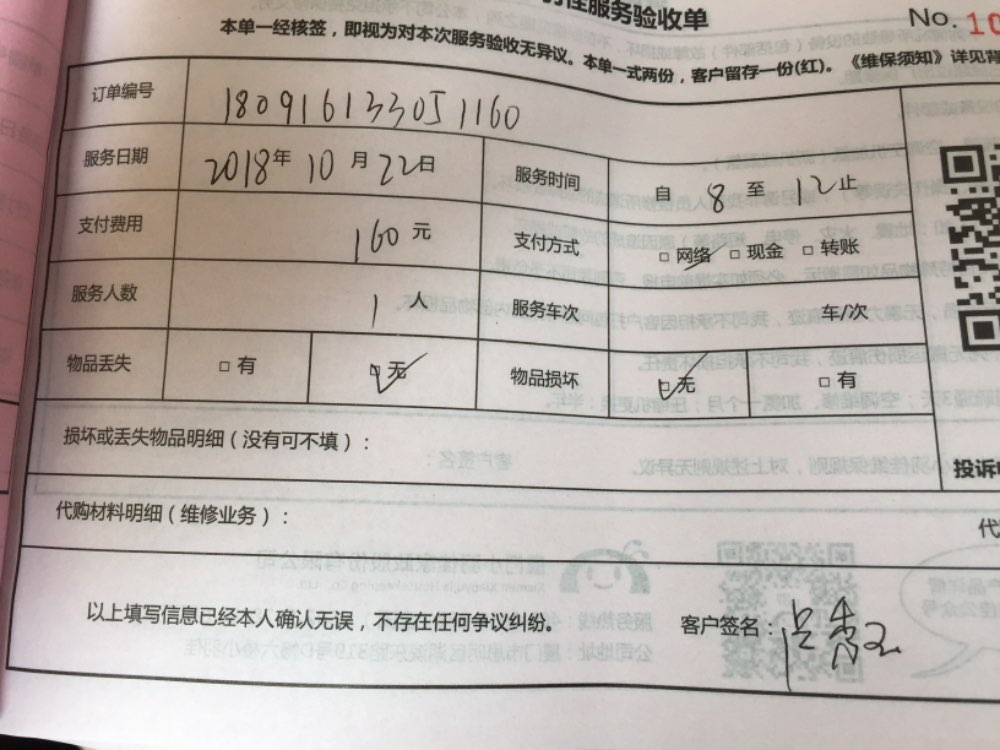 性服务验收单
No. 10
本单一经核签，即视为对本次服务验收无异议。本单一式两份，客户留存一份(红)。《维保须知》详见背
订单编号 180916133051160
服务日期 2018年 10 月 22日 服务时间 自 8 至 12 止
支付费用 160 元 支付方式 □ 网络 □ 现金 □ 转账
服务人数 1 人 服务车次 车/次
物品丢失 □ 有 □ 无 物品损坏 □ 无 □ 有
损坏或丢失物品明细（没有可不填）：
投诉
代购材料明细（维修业务）：
代
以上填写信息已经本人确认无误，不存在任何争议纠纷。 客户签名：